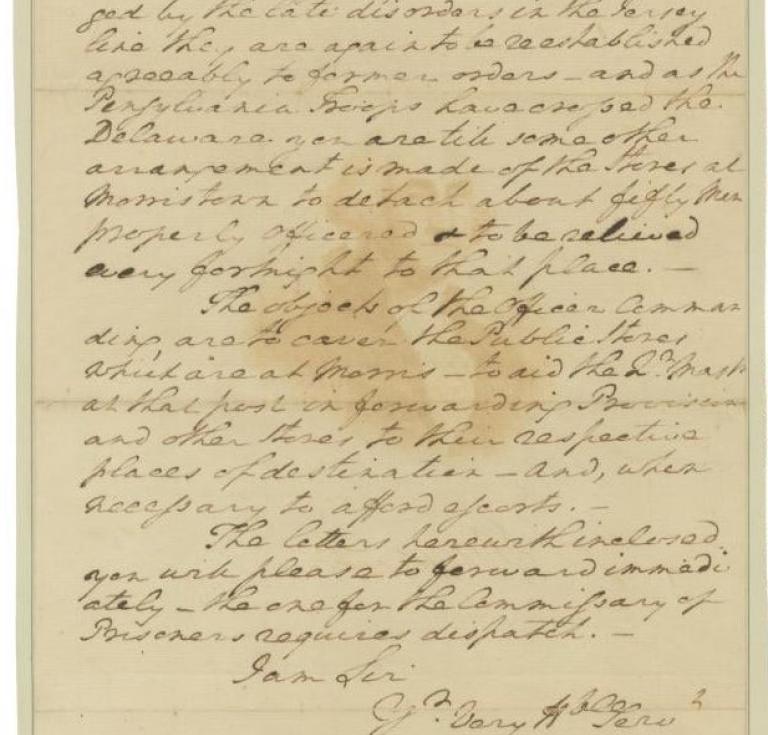 ged by the late disorders in the Jersey
line they are again to be reestablished
agreeably to former orders – and as the
Pensylvania Troops have crossed the
Delaware you are till some other
arrangement is made of the Stores at
Morristown to detach about fifty Men
properly officered & to be relieved
every fortnight to that place. –
The objects of the Officer Comman
ding are to cover the Public Stores
which are at Morris – to aid the Qr. Mastr
at that post in forwarding Provisions
and other Stores to their respective
places of destination – and, when
necessary to afford escorts. –
The letters herewith inclosed
you will please to forward immedi
ately – the one for the Commissary of
Prisoners requires dispatch. –
I am Sir
Yr. Very Hble Servt